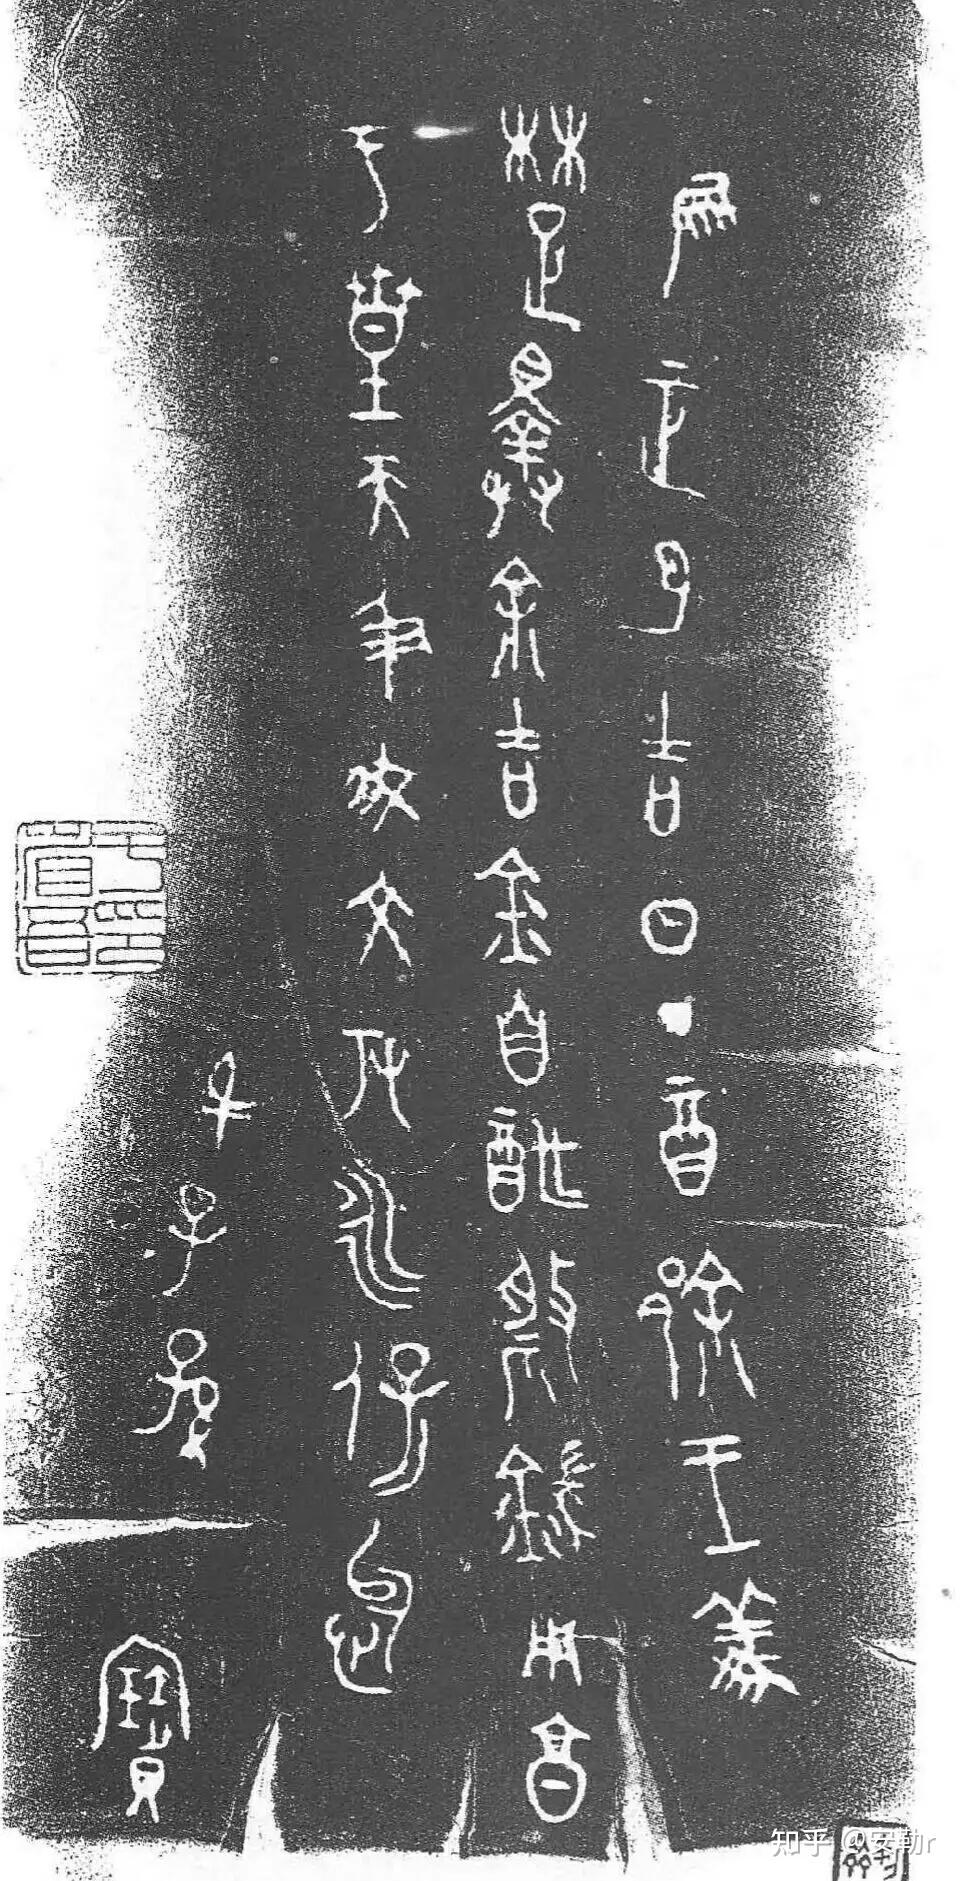 隹正月吉日丁酉徐王義
楚擇余吉金自酢祭鍴用享
于皇天及我文考永保怠
身子孫寶
知乎 @安勒r